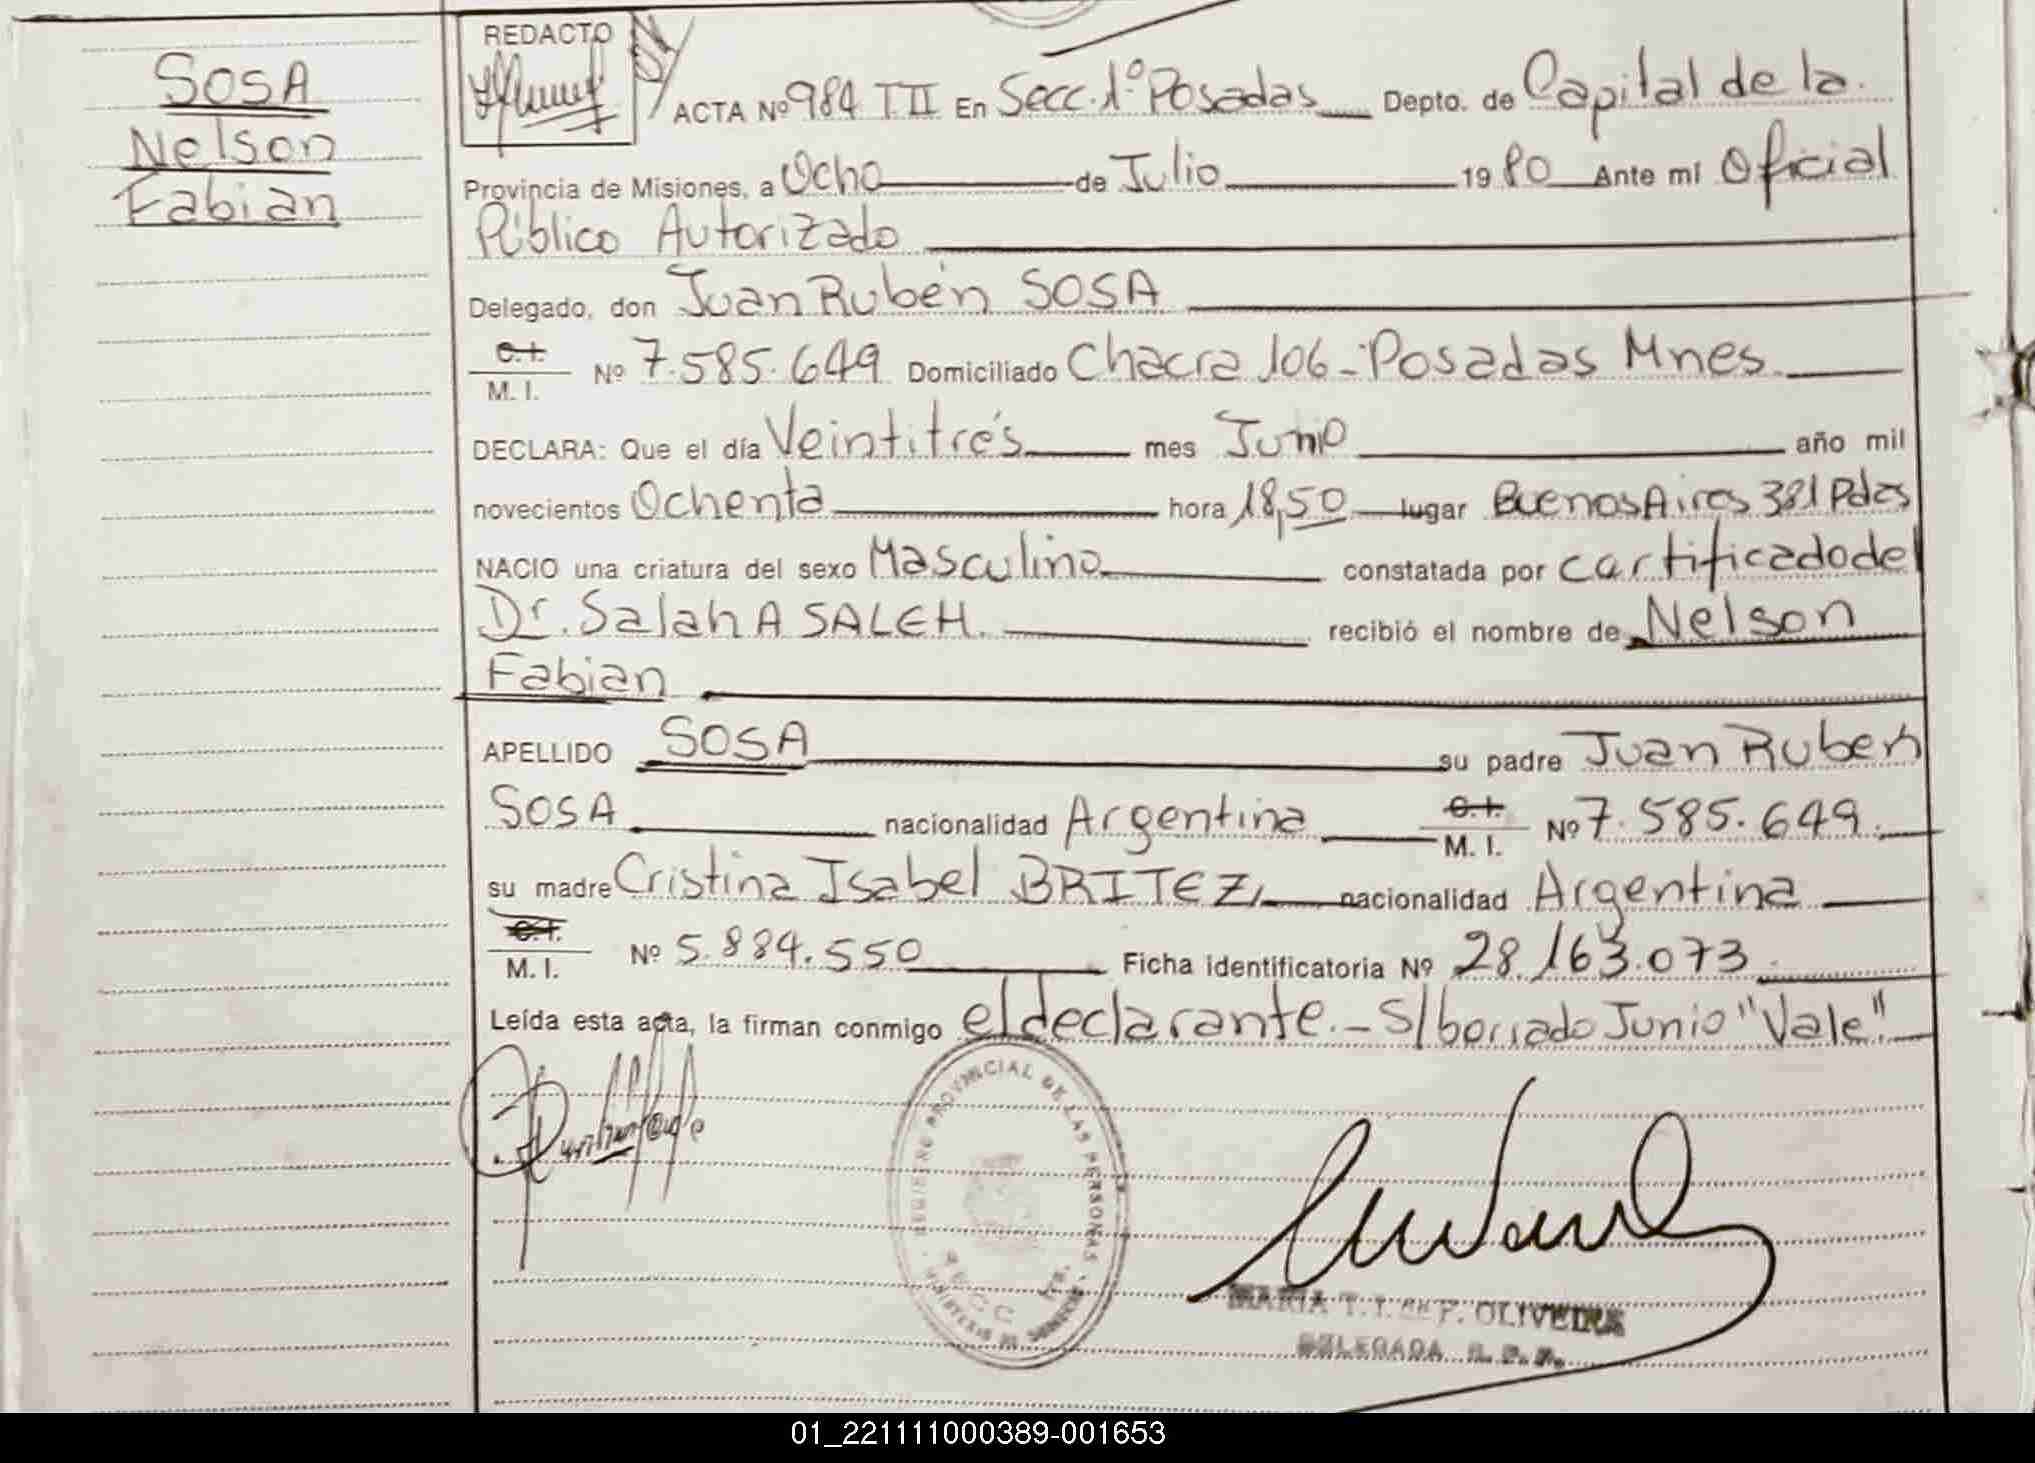 SOSA
Nelson
Fabian
REDACTO
ACTA Nº 984 TII En Secc. 1º Posadas Depto. de Capital de la
Provincia de Misiones, a Ocho de Julio 19 80 Ante mí Oficial
Público Autorizado
Delegado, don Juan Rubén SOSA
C.I.
M. I. Nº 7.585.649 Domiciliado Chacra 106 - Posadas Mnes.
DECLARA: Que el día Veintitrés mes Junio año mil
novecientos Ochenta hora 18,50 lugar Buenos Aires 381 Pdas
NACIO una criatura del sexo Masculino constatada por certificado del
Dr. Salah A SALEH. recibió el nombre de Nelson
Fabian
APELLIDO SOSA su padre Juan Ruben
SOSA nacionalidad Argentina C.I.
M. I. Nº 7.585.649.
su madre Cristina Isabel BRITEZ, nacionalidad Argentina
C.I.
M. I. Nº 5.884.550 Ficha identificatoria Nº 28.163.073
Leída esta acta, la firman conmigo el declarante. - S/borrado Junio "Vale".
REGISTRO PROVINCIAL DE LAS PERSONAS
SECC 1ra.
MARIA T. I. de P. OLIVEIRA
DELEGADA R. P. P.
01_221111000389-001653